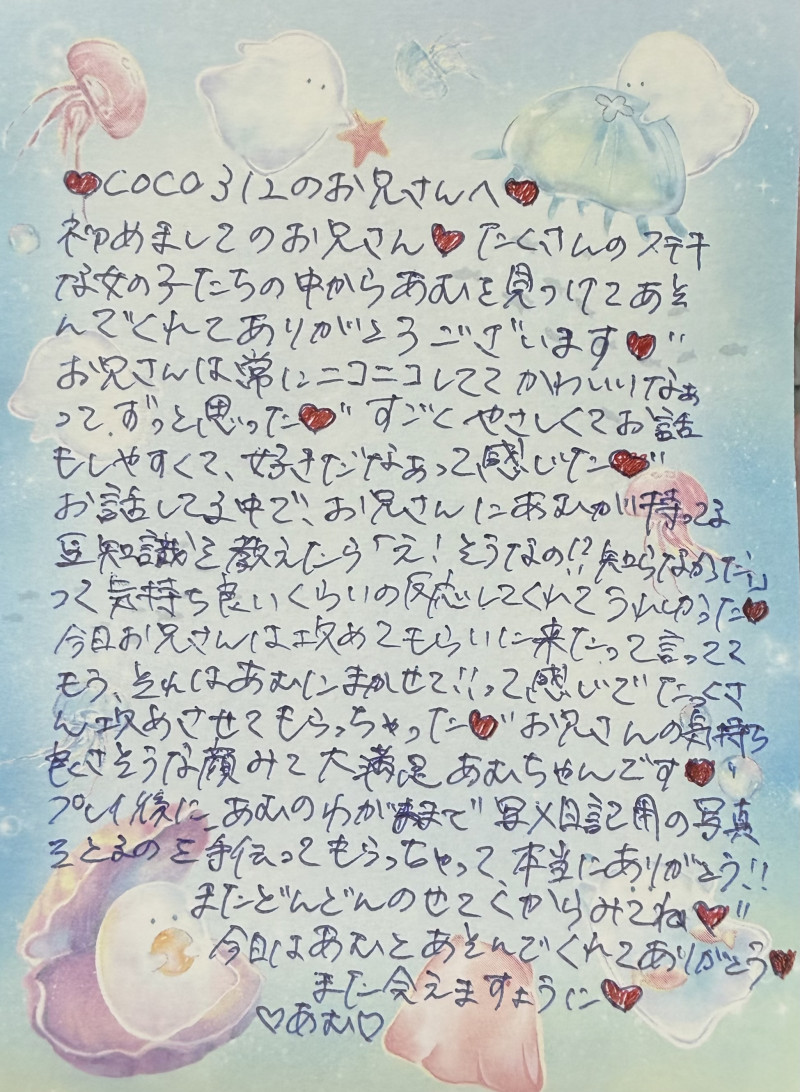 ♥COCO312のお兄さんへ♥
初めましてのお兄さん♥たくさんのステキ
な女の子たちの中からあむを見つけてあそ
んでくれてありがとうございます♥"
お兄さんは常にニコニコしててかわいいなぁ
って、ずっと思った♥"すごくやさしくてお話
もしやすくて、好きだなぁって感じた♥"
お話してる中で、お兄さんにあむが持ってる
豆知識を教えたら「え!そうなの!?知らなかった」
って気持ち良いくらいの反応してくれてうれしかった♥
今日お兄さんは攻めてもらいに来たって言ってて
もう、それはあむにまかせて!!って感じでたっくさ
ん攻めさせてもらっちゃった♥"お兄さんの気持ち
良さそうな顔みて大満足あむちゃんです♥"
プレイ後に、あむのわがままで写メ日記用の写真
をとるのを手伝ってもらっちゃって、本当にありがとう!!
またどんどんのせてくからみてね♥"
今日はあむとあそんでくれてありがとう♥
また会えますように♥
♡あむ♡